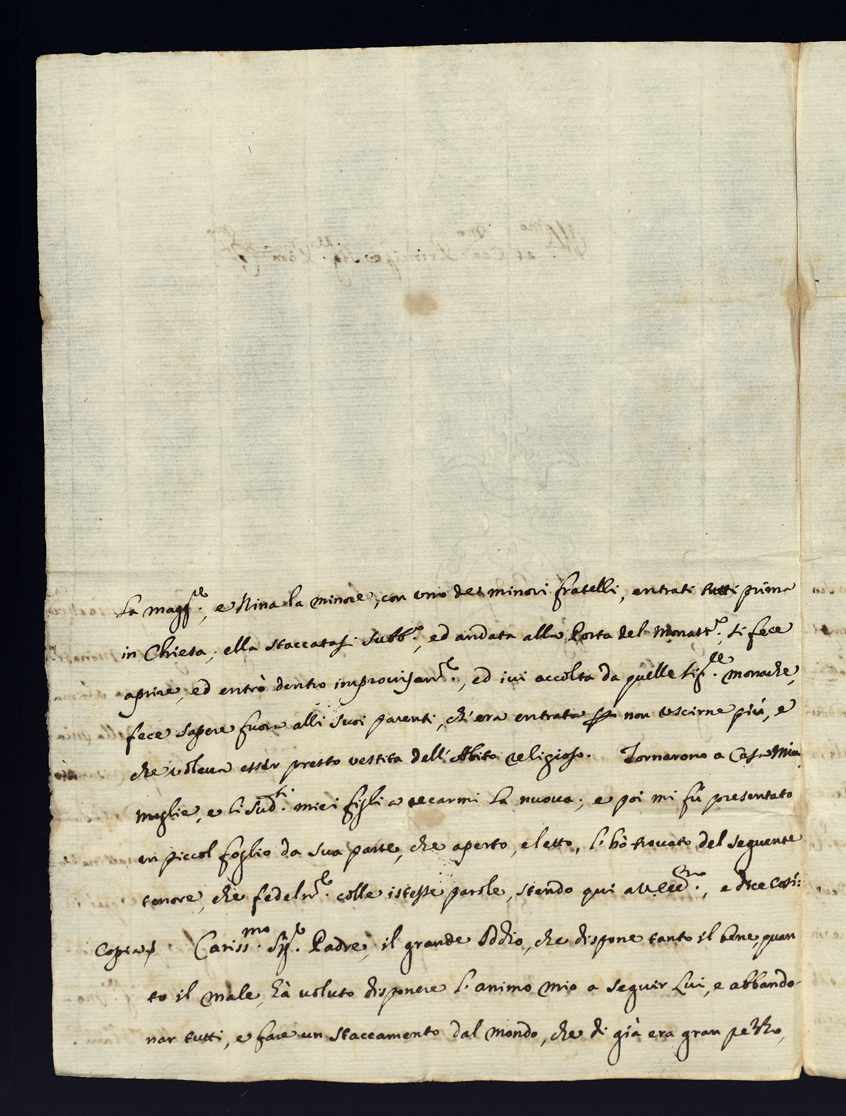 la magg.re, e Nina la minore, con uno dei minori fratelli, entrati tutti prima
in Chiesa; ella staccatasi subb.o, ed andata alla Porta del Monast.o, si fece
aprire, ed entrò dentro improvisam.te, ed ivi accolta da quelle Sig.re monache,
fece sapere fuora alli suoi parenti, ch'era entrata per non uscirne più, e
che voleva esser presto vestita dell'Abito religioso. Tornarono a Casa Mia
Moglie, e li Sud.ti miei figli a recarmi la nuova; e poi mi fù presentato
un piccol foglio da sua parte, che aperto, e letto, l'hò trovato del seguente
tenore, che fedelm.te colle istesse parole, stendo qui a V. Ecc., e dice così:
Copia Cariss.mo Sig.r Padre, il grande Iddio, che dispone tanto il bene, quan
to il male, hà voluto disponere l'animo mio a seguir Lui, e abbando-
nar tutti, e fare un staccamento dal mondo, che di già era gran pezzo,